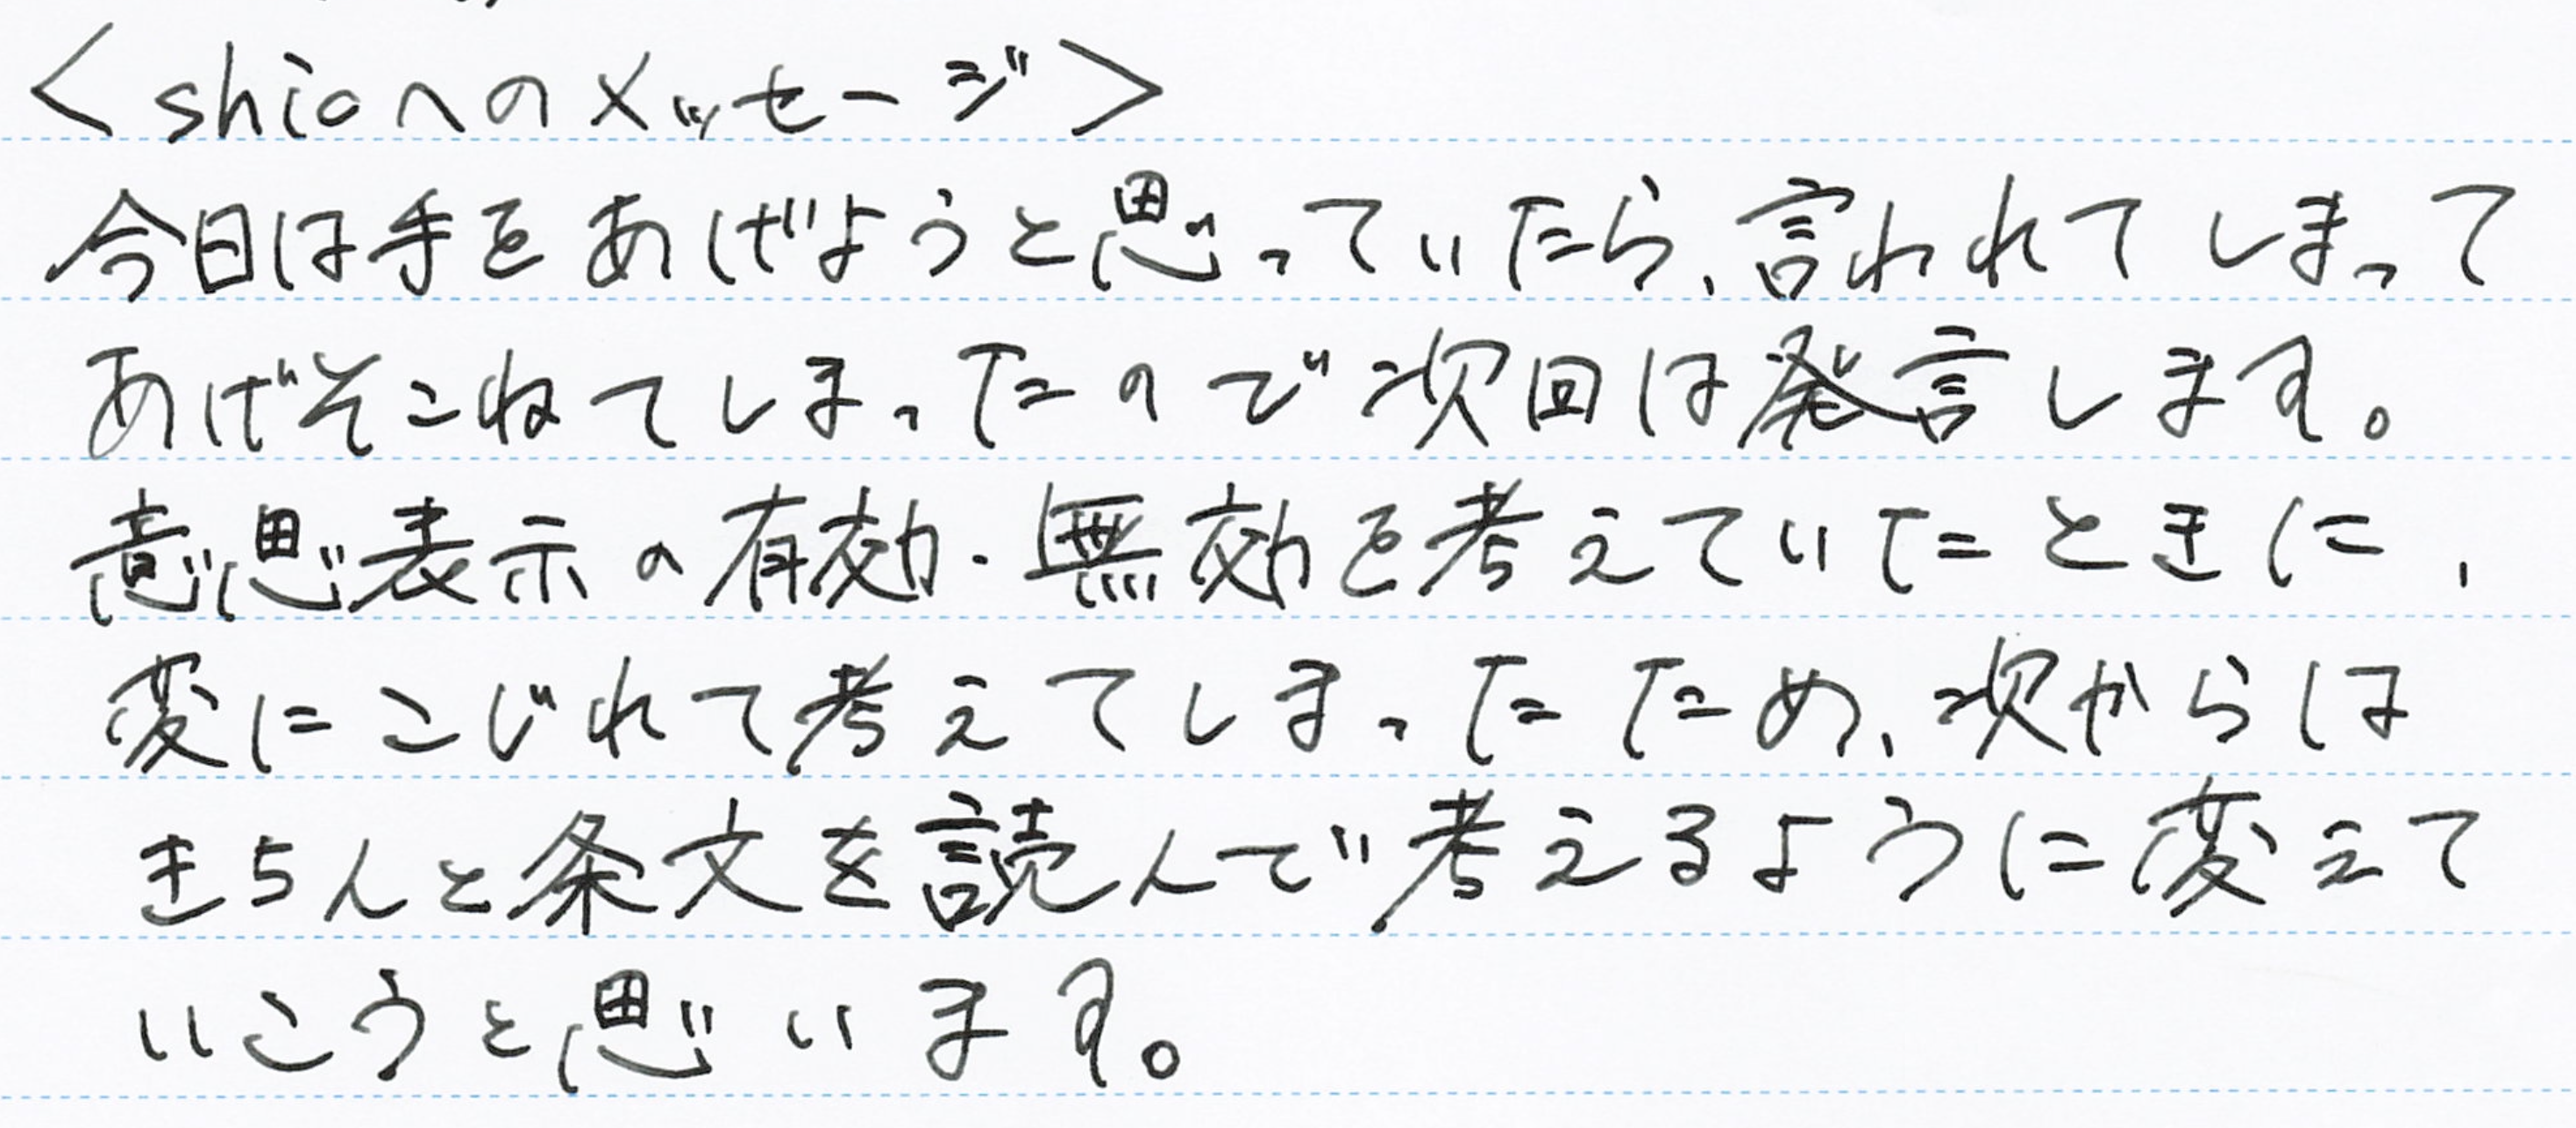 <shioへのメッセージ>
今日は手をあげようと思っていたら、言われてしまって
あげそこねてしまったので次回は発言します。
意思表示の有効・無効を考えていたときに、
変にこじれて考えてしまったため、次からは
きちんと条文を読んで考えるように変えて
いこうと思います。